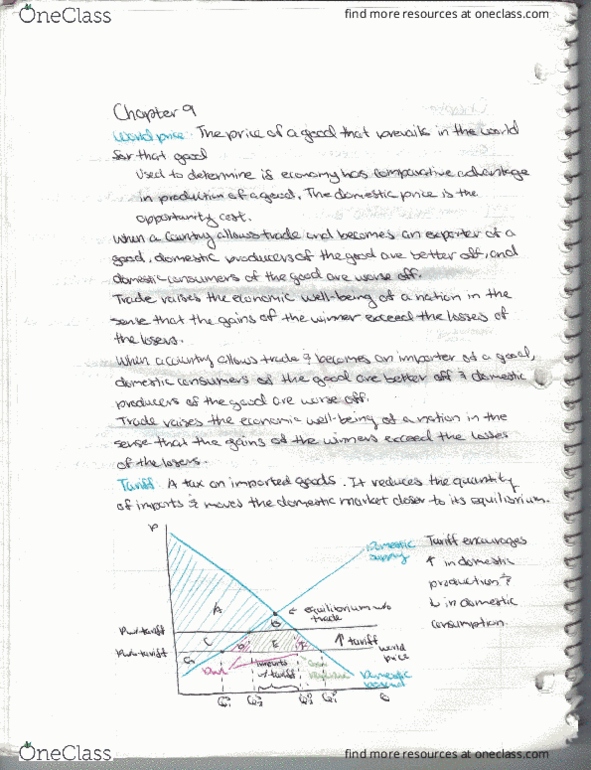 OneClass
find more resources at oneclass.com
Chapter 9
World price: The price of a good that prevails in the world
for that good
Used to determine if economy has comparative advantage
in production of a good. The domestic price is the
opportunity cost.
When a country allows trade and becomes an exporter of a
good, domestic producers of the good are better off, and
domestic consumers of the good are worse off.
Trade raises the economic well-being of a nation in the
sense that the gains of the winner exceed the losses of
the losers.
When a country allows trade & becomes an importer of a good,
domestic consumers of the good are better off & domestic
producers of the good are worse off.
Trade raises the economic well-being of a nation in the
sense that the gains of the winners exceed the losses
of the losers.
Tariff: A tax on imported goods. It reduces the quantity
of imports & moves the domestic market closer to its equilibrium.
P
Domestic
supply
Tariff encourages
↑ in domestic
production &
↓ in domestic
consumption.
A
← equilibrium w/o
trade
B
P w/ tariff
C
D
E
F
↑ tariff
P w/o tariff
world
price
G
imports
w/ tariff
Domestic
demand
Q
OneClass
find more resources at oneclass.com